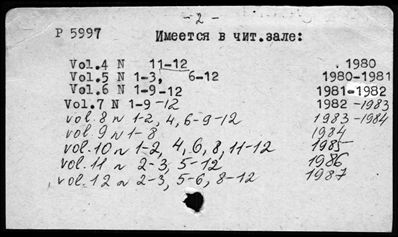 - 2 -
P 5997
Имеется в чит.зале:
Vol.4 N 11-12 1980
Vol.5 N 1-3, 6-12 1980-1981
Vol.6 N 1-9-12 1981-1982
Vol.7 N 1-9-12 1982-1983
vol.8 N 1-2, 4, 6-9-12 1983-1984
vol 9 N 1-8 1984
vol.10 N 1-2, 4, 6, 8, 11-12 1985
vol.11 N 2-3, 5-12 1986
vol.12 N 2-3, 5-6, 8-12 1987